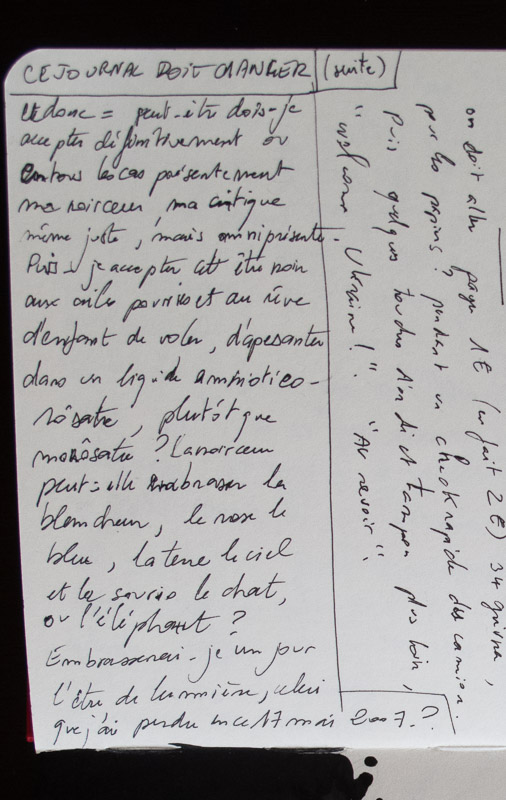 CE JOURNAL DOIT CHANGER (suite)
Et donc = peut-être dois-je
accepter définitivement ou
en tous les cas présentement
ma noirceur, ma critique
même juste, mais omniprésente.
Puis-je accepter cet être noir
aux ailes pourries et au rêve
d'enfant de voler, d'apesanter
dans un liquide amniotico-
rosâtre, plutôt que
morosâtre ? La noirceur
peut-elle embrasser la
blancheur, le rose le
bleu, la terre le ciel
et la souris le chat,
ou l'éléphant ?
Embrasserai-je un jour
l'être de lumière, celui
que j'ai perdu ce 17 mai 2007 ?
on doit aller payer 1€ (en fait 2€) 34 grivna,
pour les papiers ? pendant un check rapide des camion.
Puis quelques torches d'un dict tampon plus loin,
"welcome Ukraine !". "Au revoir".